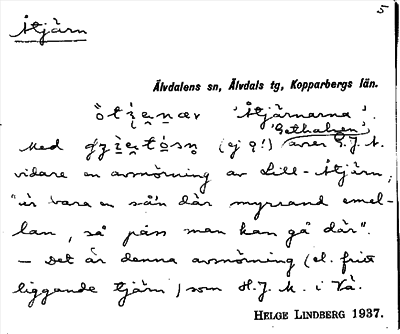 5
Åtjärn
Älvdalens sn, Älvdals tg, Kopparbergs län.
'Åtjärnarna'.
'Gethalsen'
Med (ej g!) avser G.J.K.
vidare en avsnörning av Lill-Åtjärn,
"är bara en sån där myrrand emel-
lan, så pass man kan gå där".
– Det är denna avsnörning (el. fritt
liggande tjärn) som H.J.K. i Vå.
HELGE LINDBERG 1937.